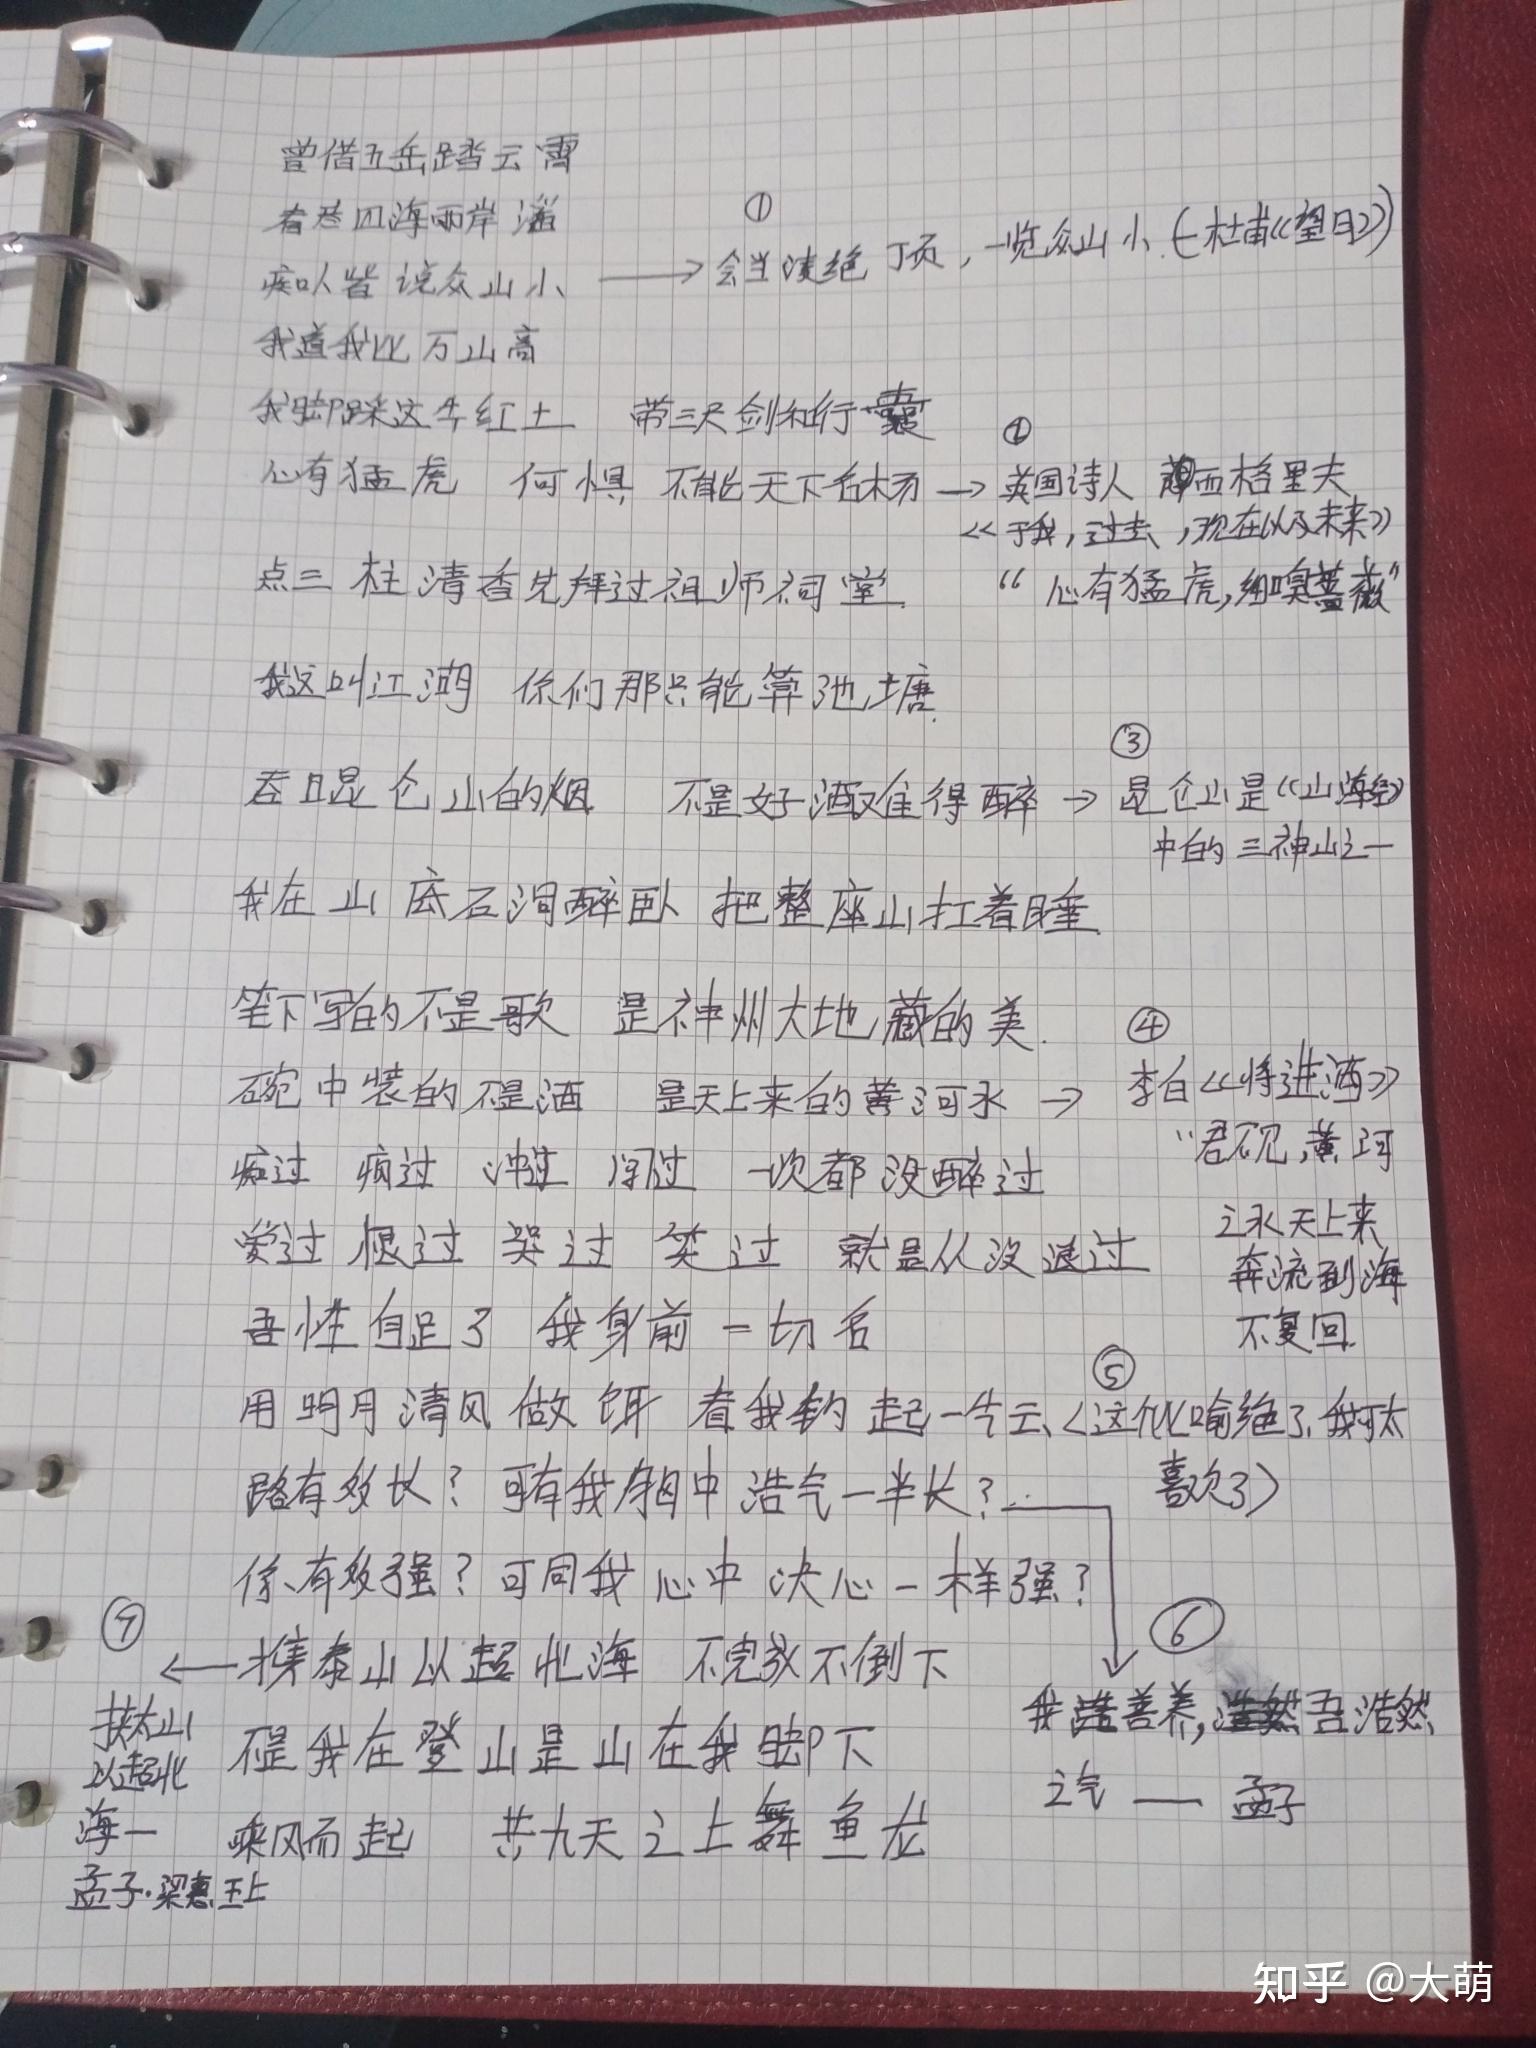 曾借五岳踏云霄
看卷四海两岸潇
①
痴人皆说众山小 → 会当凌绝顶，一览众山小（杜甫《望日》）
我道我比万山高
我脚踩这片红土 带三尺剑和行囊
②
心有猛虎 何惧 不能天下名扬 → 英国诗人 西格里夫
《于我，过去，现在以及未来》
点三柱清香先拜过祖师祠堂 “心有猛虎，细嗅蔷薇”
我这叫江湖 你们那只能算池塘
③
吞口昆仑山的烟 不是好酒难得醉 → 昆仑山是《山海经》
中的三神山之一
我在山底石洞醉卧 把整座山扛着睡
笔下写的不是歌 是神州大地藏的美
④
碗中装的不是酒 是天上来的黄河水 → 李白《将进酒》
“君不见，黄河
之水天上来
奔流到海
不复回
痴过 疯过 冲过 闯过 一次都没醉过
爱过 恨过 哭过 笑过 就是从没退过
吾性自足了 我身前一切名
⑤
用明月清风做饵 看我钓起一片云、（这个比喻绝了，我可太
喜欢了）
路有多长？可有我胸中浩气一半长？
你有多强？可同我心中决心一样强？
⑦
携泰山以超北海 不完敌不倒下
扶太山
以超北
海一
孟子·梁惠王上
⑥
我善养，吾浩然
之气 — 孟子
不是我在登山是山在我脚下
乘风而起 共九天之上舞鱼龙
知乎 @大萌